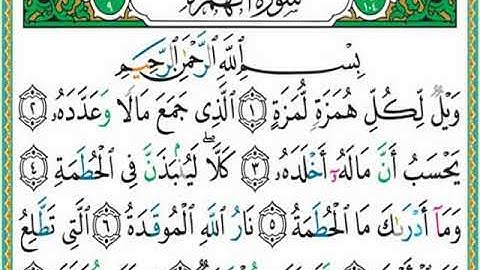 ٩ سورة الهمزة ١٠٤
بِسْمِ ٱللَّهِ ٱلرَّحْمَٰنِ ٱلرَّحِيمِ
وَيْلٌ لِّكُلِّ هُمَزَةٍ لُّمَزَةٍ ١ ٱلَّذِى جَمَعَ مَالًا وَعَدَّدَهُۥ ٢
يَحْسَبُ أَنَّ مَالَهُۥٓ أَخْلَدَهُۥ ٣ كَلَّا ۖ لَيُنۢبَذَنَّ فِى ٱلْحُطَمَةِ ٤
وَمَآ أَدْرَىٰكَ مَا ٱلْحُطَمَةُ ٥ نَارُ ٱللَّهِ ٱلْمُوقَدَةُ ٦ ٱلَّتِى تَطَّلِعُ